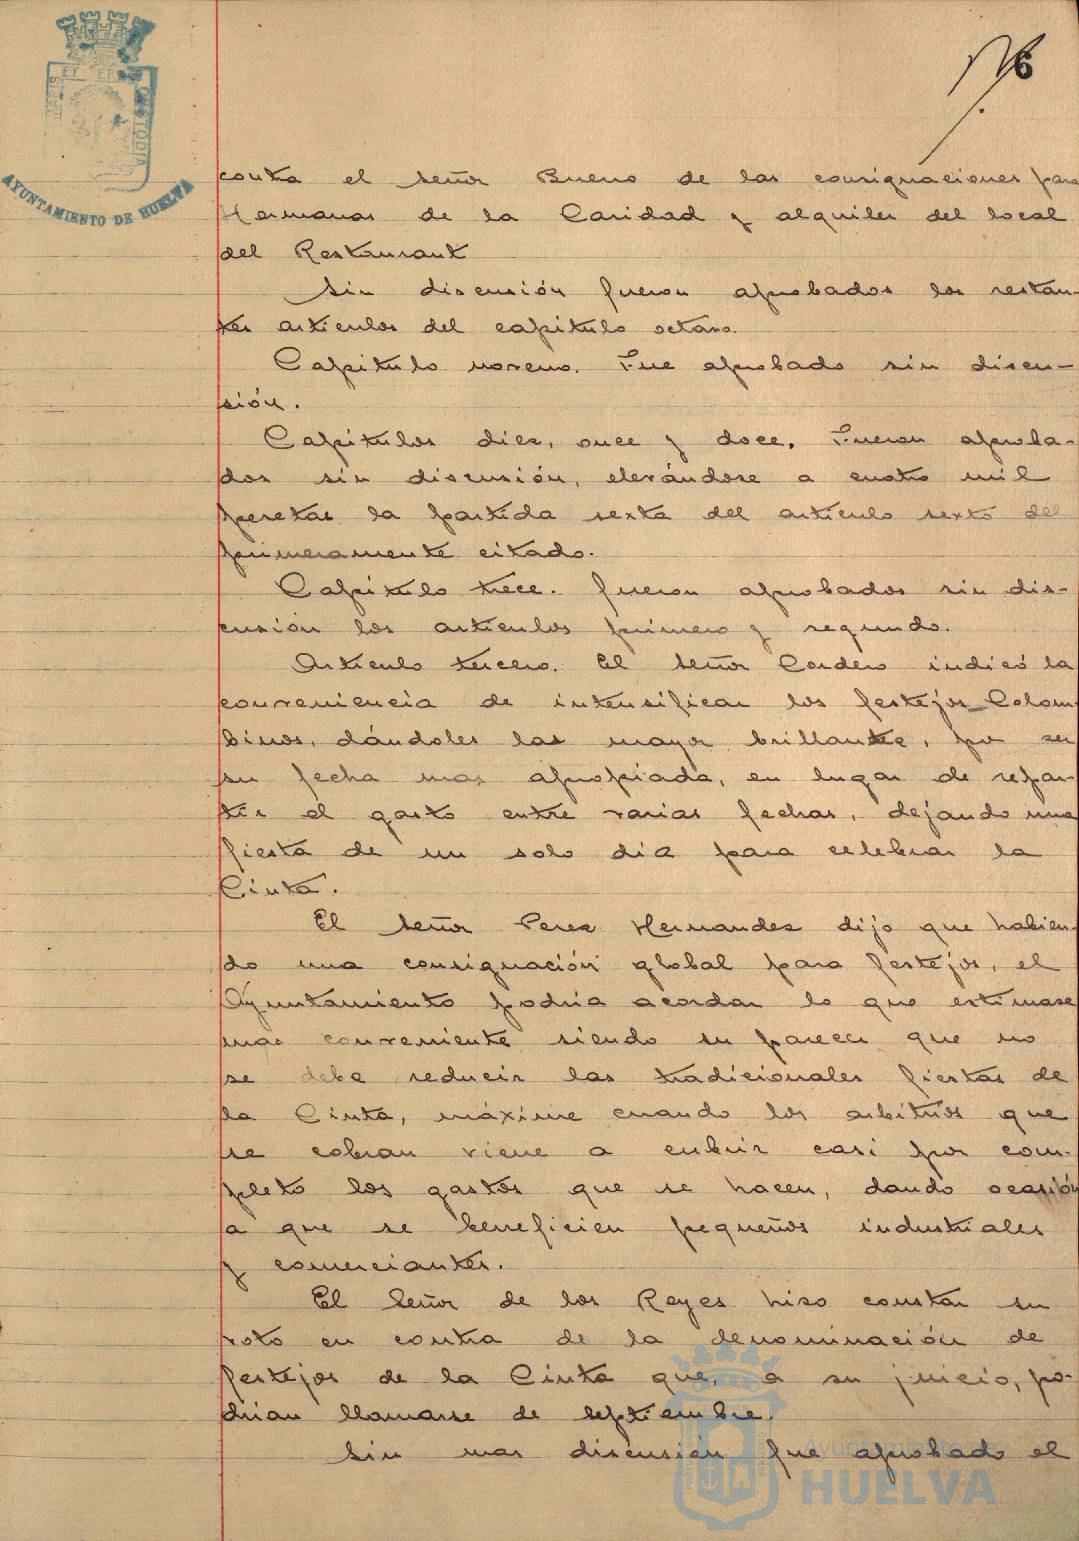 6
PORTUS ET TERRAE CUSTODIA
AYUNTAMIENTO DE HUELVA
contra el señor Bueno de las consignaciones para
Hermanas de la Caridad y alquiler del local
del Restaurant
Sin discusión fueron aprobados los restan-
tes articulos del capitulo octavo.
Capitulo noveno. Fue aprobado sin discu-
sión.
Capitulos diez, once y doce. Fueron aproba-
dos sin discusión, elevándose a cuatro mil
pesetas la partida sexta del articulo sexto del
primeramente citado.
Capitulo trece. fueron aprobados sin dis-
cusión los articulos primero y segundo.
Articulo tercero. El señor Cordero indicó la
conveniencia de intensificar los festejos Colom-
binos, dándoles las mayor brillantez, por ser
su fecha mas apropiada, en lugar de repar-
tir el gasto entre varias fechas, dejando una
fiesta de un solo dia para celebrar la
Cinta.
El señor Perez Hernandez dijo que habien-
do una consignación global para festejos, el
Ayuntamiento podria acordar lo que estimase
mas conveniente siendo su parecer que no
se debe reducir las tradicionales fiestas de
la Cinta, máxime cuando los arbitrios que
se cobran viene a cubrir casi por com-
pleto los gastos que se hacen, dando ocasión
a que se beneficien pequeños industriales
y comerciantes.
El Señor de los Reyes hizo constar su
voto en contra de la denominación de
festejos de la Cinta que, a su juicio, po-
drian llamarse de septiembre.
Sin mas discusión fue aprobado el
Ayuntamiento de
HUELVA